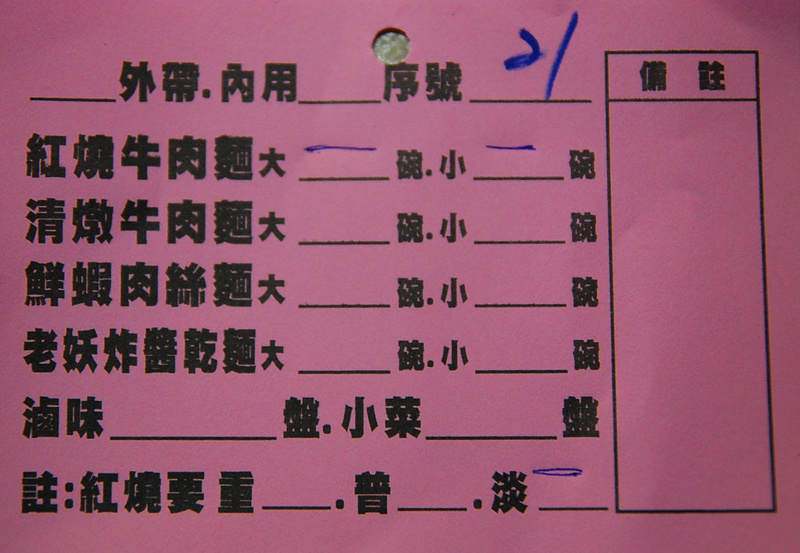 外帶.內用 序號 21 備註
紅燒牛肉麵大 一 碗.小 一 碗
清燉牛肉麵大 碗.小 碗
鮮蝦肉絲麵大 碗.小 碗
老妖炸醬乾麵大 碗.小 碗
滷味 盤.小菜 盤
註:紅燒要重 .普 .淡 一